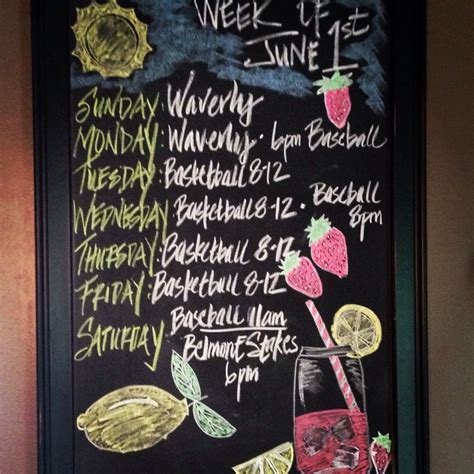 WEEK OF
JUNE 1st
SUNDAY: Waverly
MONDAY: Waverly • 6pm Baseball
TUESDAY: Basketball 8-12
WEDNESDAY: Basketball 8-12 • Baseball
8pm
THURSDAY: Basketball 8-12
FRIDAY: Basketball 8-12
SATURDAY: Baseball 11am
Belmont Stakes
6pm